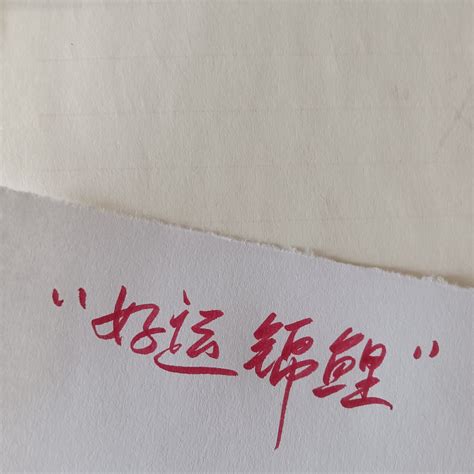 “好运锦鲤”